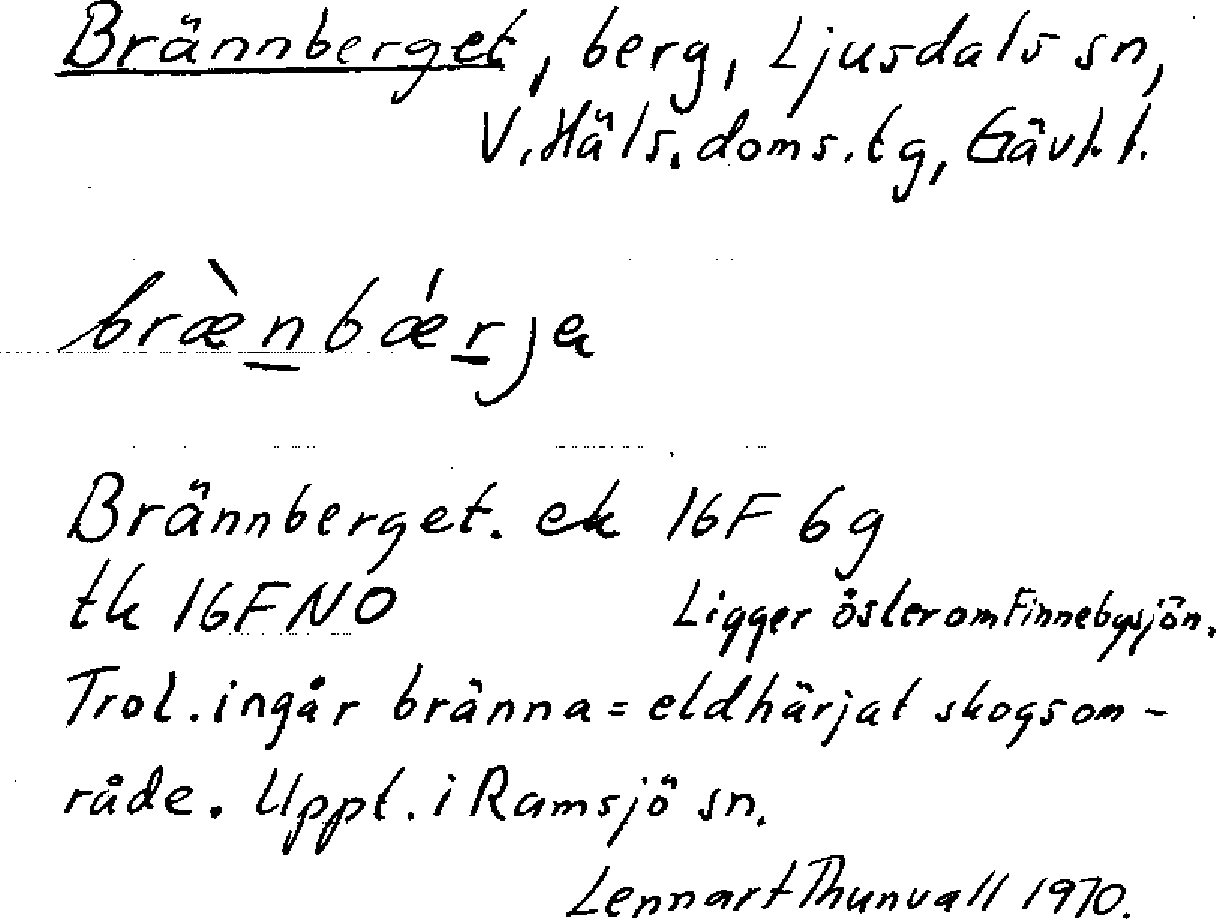 Brännberget, berg, Ljusdals sn,
V. Häls. doms. tg, Gävl. l.
bræ̀nbǽrja
Brännberget. ek 16F 6g
tk 16F NO Ligger öster om Finnebysjön.
Trol. ingår bränna = eldhärjat skogsom-
råde. Uppt. i Ramsjö sn.
Lennart Thunvall 1970.